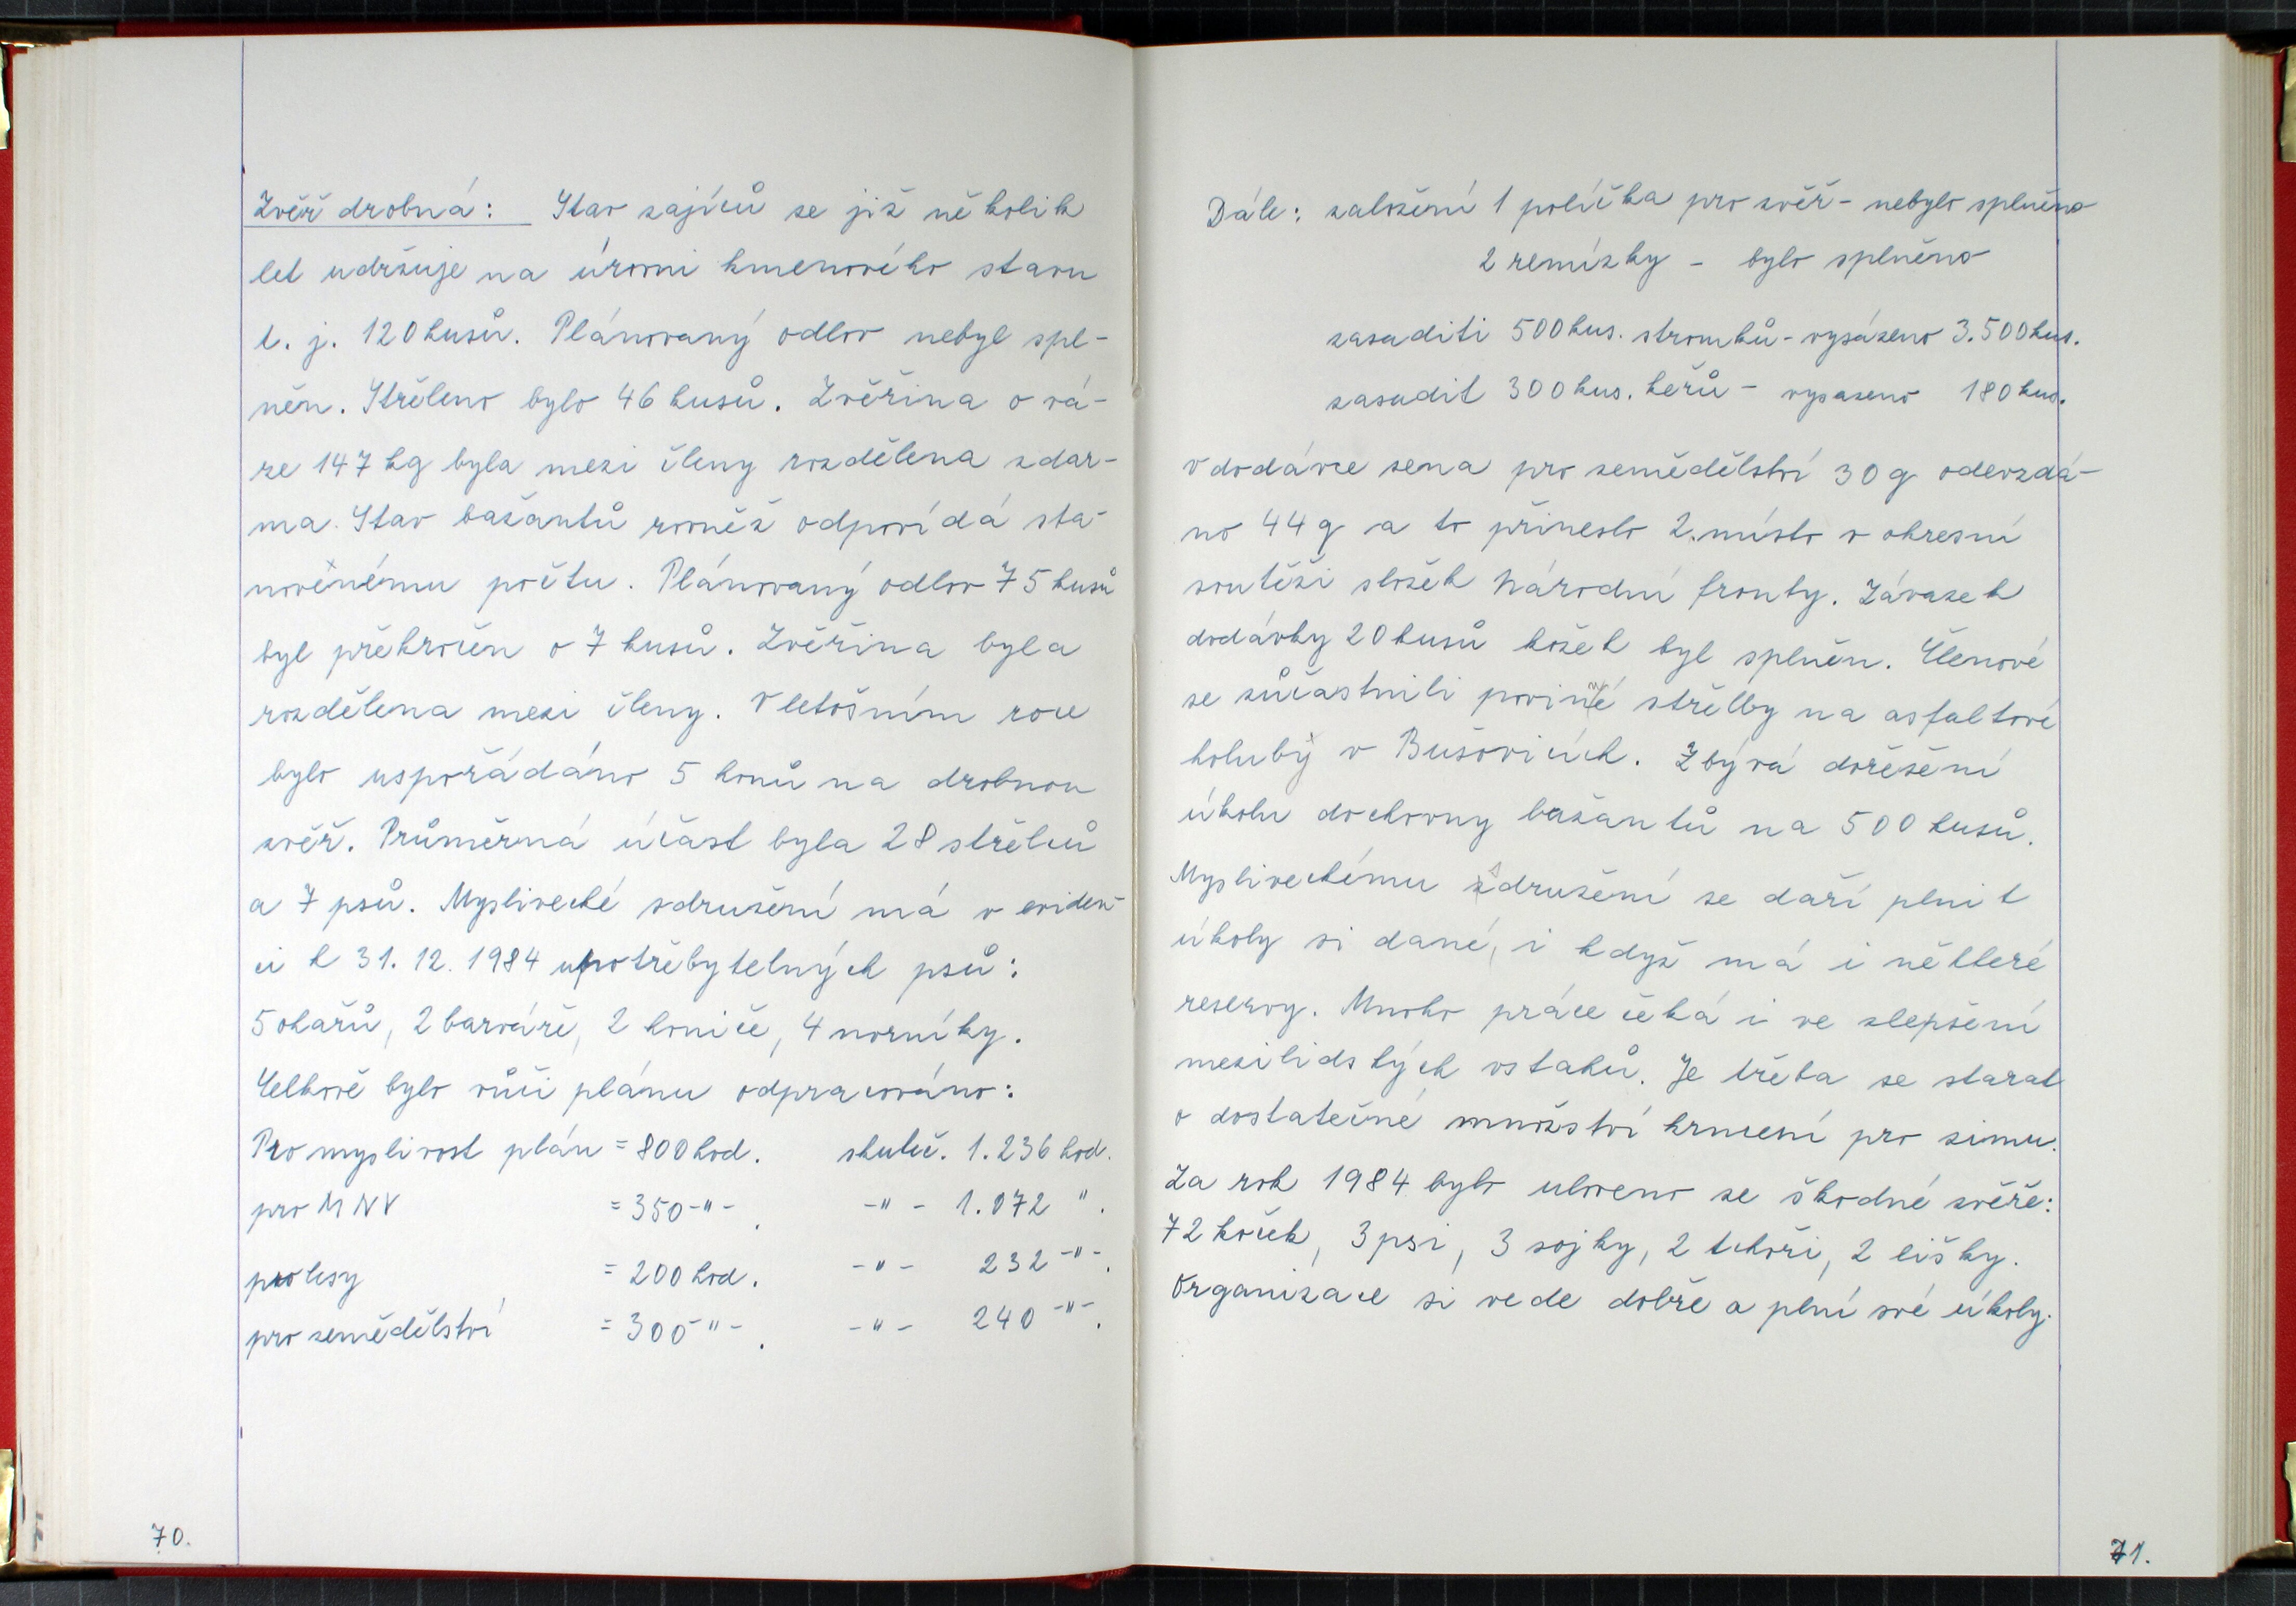 Zvěř drobná: Stav zajíců se již několik
let udržuje na úrovni kmenového stavu
t. j. 120 kusů. Plánovaný odlov nebyl spl-
něn. Střeleno bylo 46 kusů. Zvěřina o vá-
ze 147 kg byla mezi členy rozdělena zdar-
ma. Stav bažantů rovněž odpovídá sta-
novenému počtu. Plánovaný odlov 75 kusů
byl překročen o 7 kusů. Zvěřina byla
rozdělena mezi členy. V letošním roce
bylo uspořádáno 5 honů na drobnou
zvěř. Průměrná účast byla 28 střelců
a 7 psů. Myslivecké sdružení má v eviden-
ci k 31. 12. 1984 upotřebytelných psů:
5 ohařů, 2 barváře, 2 honiče, 4 norníky.
Celkově bylo vůči plánu odpracováno:
Pro myslivost plán = 800 hod. skuteč. 1.236 hod.
pro MNV = 350 -"- . -"- 1.072 " .
pro lesy = 200 hod. -"- 232 -"- .
pro zemědělství = 300 -"- . -"- 240 -"- .
70.
Dále: založení 1 políčka pro zvěř - nebylo splněno
2 remízky - bylo splněno
zasaditi 500 kus. stromků - vysázeno 3.500 kus.
zasadit 300 kus. keřů - vysazeno 180 kus.
v dodávce sena pro zemědělství 30 q odevzdá-
no 44 q a to přineslo 2. místo v okresní
soutěži složek Národní fronty. Závazek
dodávky 20 kusů kožek byl splněn. Členové
se zůčastnili povinné střelby na asfaltové
holuby v Bušovicích. Zbývá dořešení
úkolu dochovny bažantů na 500 kusů.
Mysliveckému sdružení se daří plnit
úkoly si dané, i když má i některé
reservy. Mnoho práce čeká i ve zlepšení
mezilidských vstahů. Je třeba se starat
o dostatečné množství krmení pro zimu.
Za rok 1984 bylo uloveno ze škodné zvěře:
72 koček, 3 psi, 3 sojky, 2 tchoři, 2 lišky.
Organizace si vede dobře a plní své úkoly.
71.